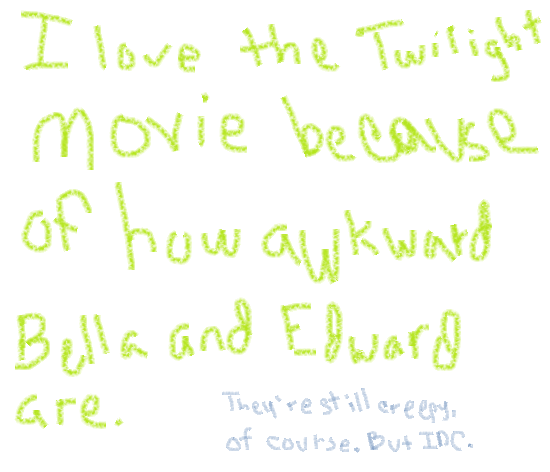 I love the Twilight
movie because
of how awkward
Bella and Edward
are.
They're still creepy,
of course. But IDC.